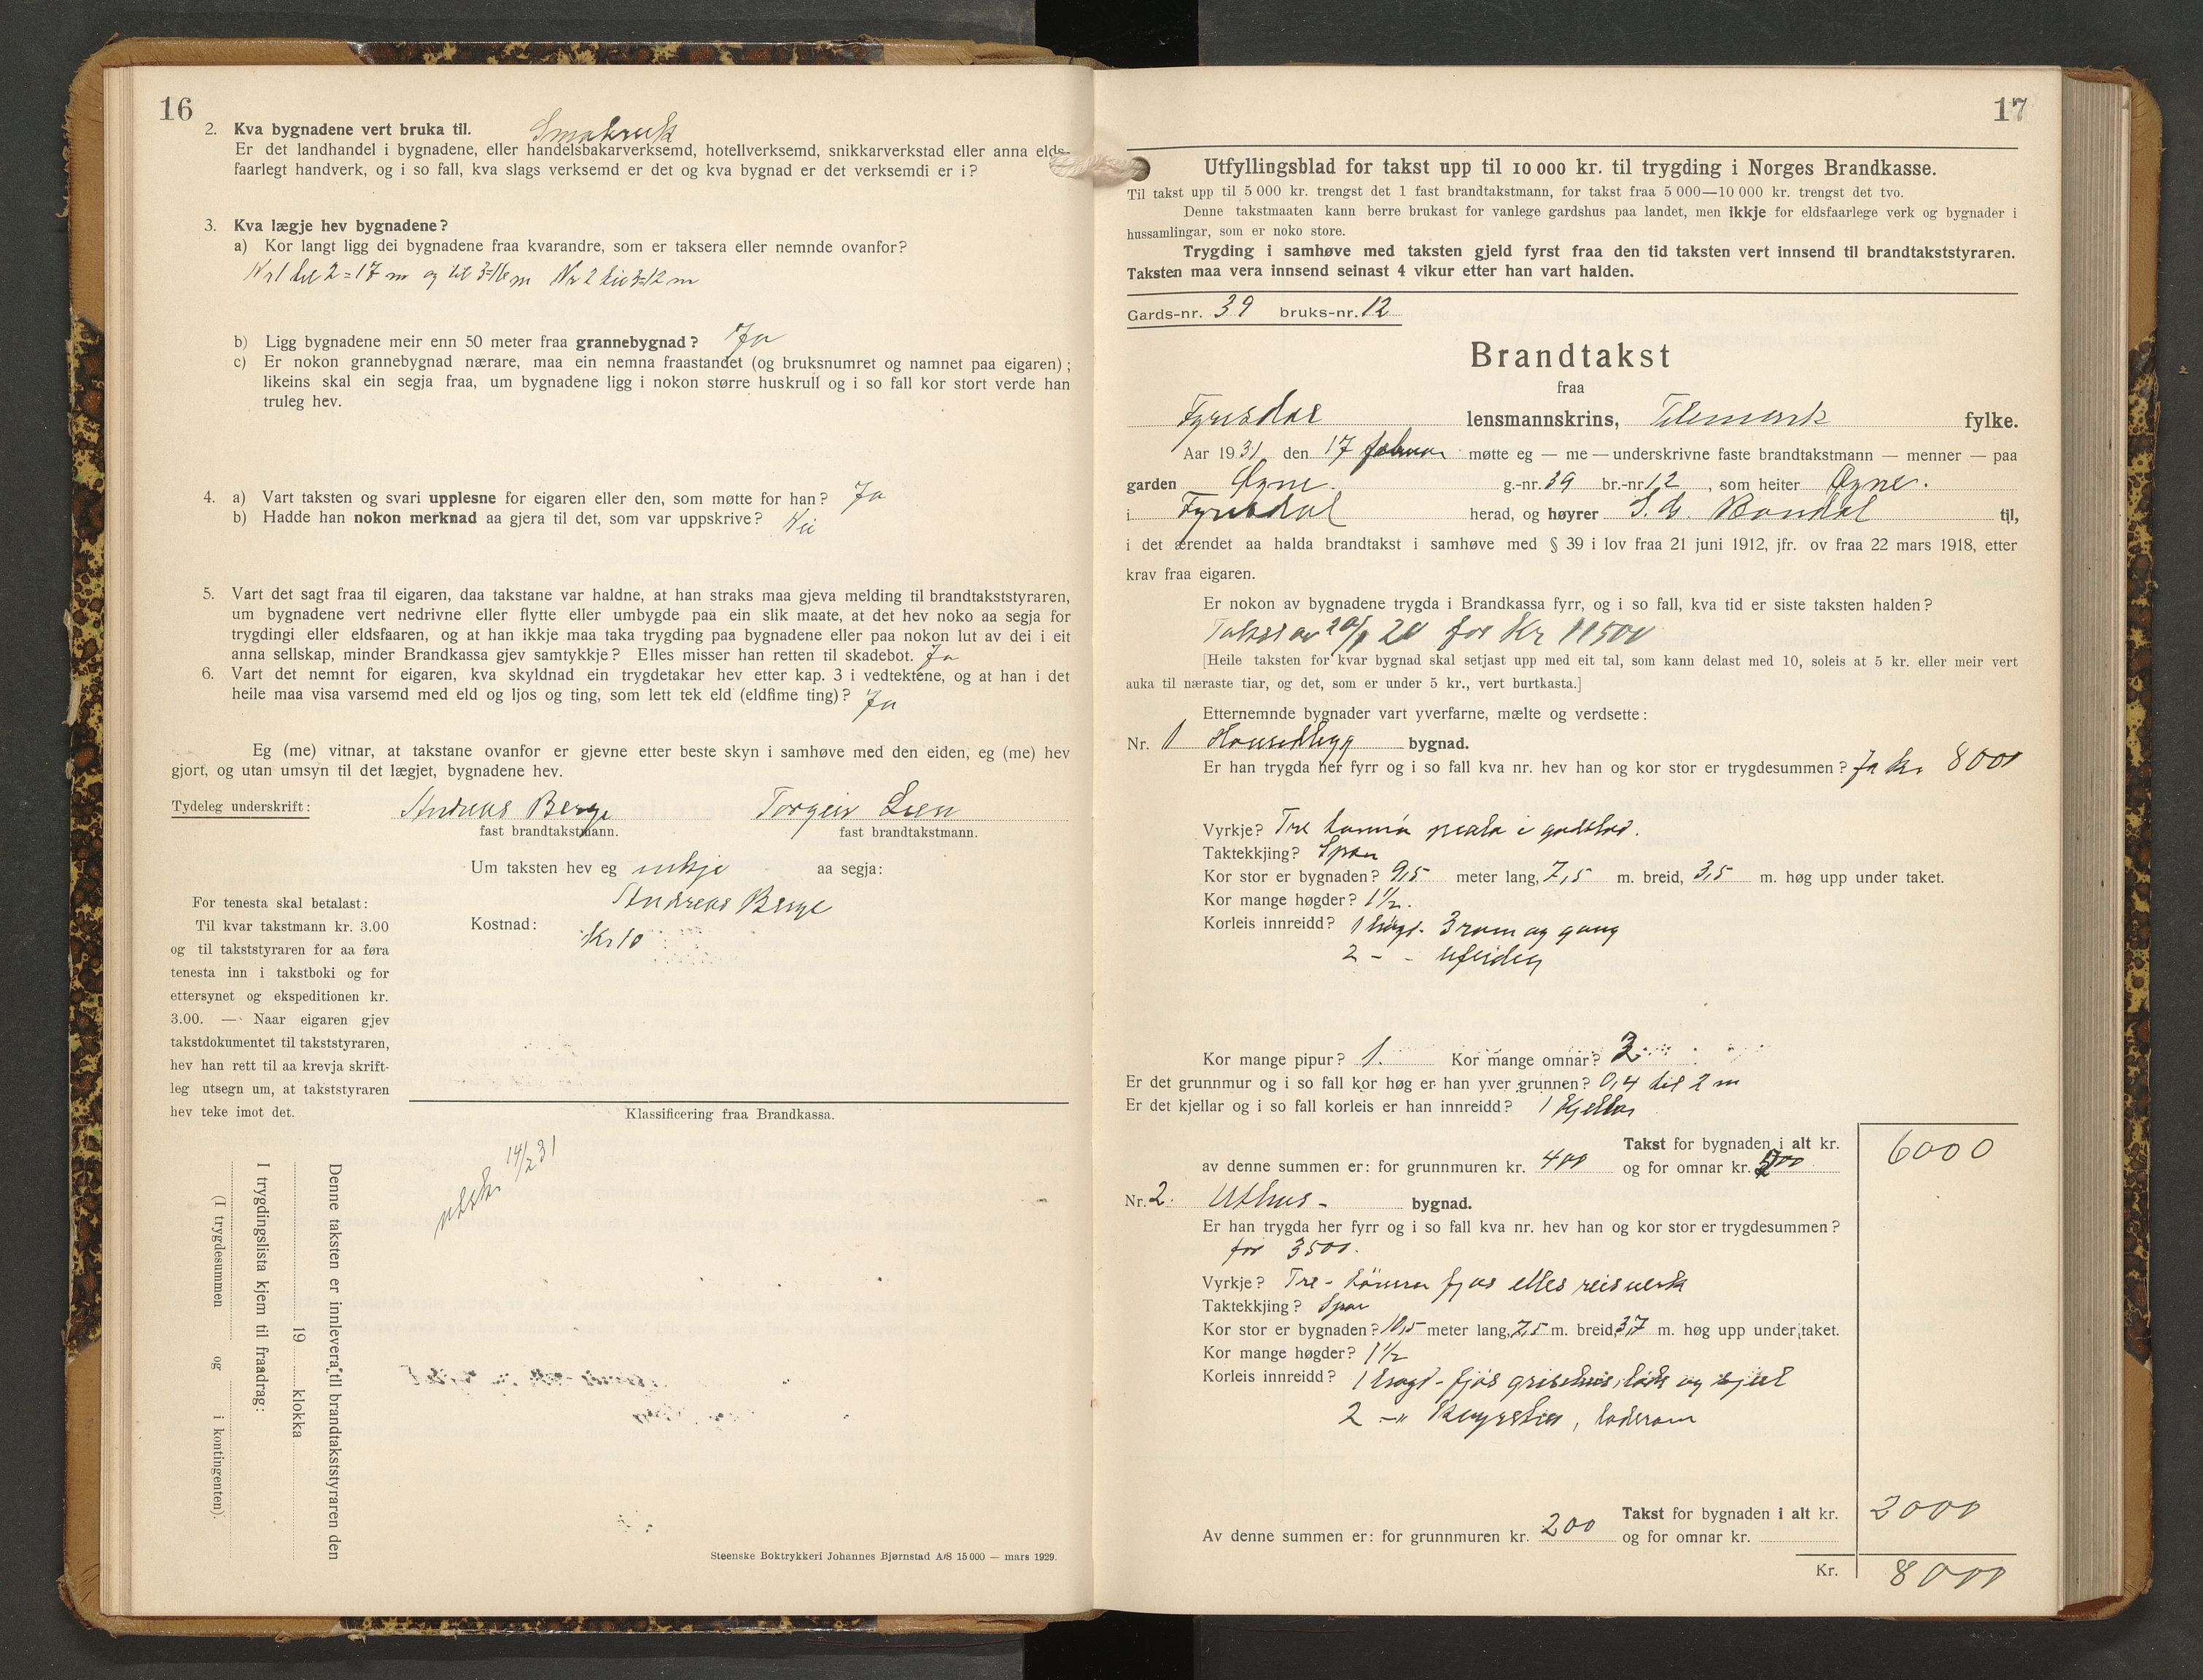 16
2. Kva bygnadene vert bruka til. Smabruk
Er det landhandel i bygnadene, eller handelsbakarverksemd, hotellverksemd, snikkarverkstad eller anna elds-
faarlegt handverk, og i so fall, kva slags verksemd er det og kva bygnad er det verksemdi er i?
3. Kva lægje hev bygnadene?
a) Kor langt ligg dei bygnadene fraa kvarandre, som er taksera eller nemnde ovanfor?
Nr 1 til 2 = 17 m og til 3=16 m Nr 2 til 3=12 m
b) Ligg bygnadene meir enn 50 meter fraa grannebygnad? Ja
c) Er nokon grannebygnad nærare, maa ein nemna fraastandet (og bruksnumret og namnet paa eigaren);
likeins skal ein segja fraa, um bygnadene ligg i nokon større huskrull og i so fall kor stort verde han
truleg hev.
4. a) Vart taksten og svari upplesne for eigaren eller den, som møtte for han? Ja
b) Hadde han nokon merknad aa gjera til det, som var uppskrive? Nei
5. Vart det sagt fraa til eigaren, daa takstane var haldne, at han straks maa gjeva melding til brandtakststyraren,
um bygnadene vert nedrivne eller flytte eller umbygde paa ein slik maate, at det hev noko aa segja for
trygdingi eller eldsfaaren, og at han ikkje maa taka trygding paa bygnadene eller paa nokon lut av dei i eit
anna sellskap, minder Brandkassa gjev samtykkje? Elles misser han retten til skadebot. Ja
6. Vart det nemnt for eigaren, kva skyldnad ein trygdetakar hev etter kap. 3 i vedtektene, og at han i det
heile maa visa varsemd med eld og ljos og ting, som lett tek eld (eldfime ting)? Ja
Eg (me) vitnar, at takstane ovanfor er gjevne etter beste skyn i samhøve med den eiden, eg (me) hev
gjort, og utan umsyn til det lægjet, bygnadene hev.
Tydeleg underskrift: Andreas Berge Torgeir Lien
fast brandtakstmann. fast brandtakstmann.
Um taksten hev eg inkje aa segja:
Andreas Berge
Kostnad: Kr 10
For tenesta skal betalast:
Til kvar takstmann kr. 3.00
og til takststyraren for aa føra
tenesta inn i takstboki og for
ettersynet og ekspeditionen kr.
3.00. — Naar eigaren gjev
takstdokumentet til takststyraren,
hev han rett til aa krevja skrift-
leg utsegn um, at takststyraren
hev teke imot det.
Klassificering fraa Brandkassa.
utskr. 14/2 31
Denne taksten er innlevera til brandtakststyraren den
19 klokka
I trygdingslista kjem til fraadrag:
(I trygdesummen og i kontingenten).
Steenske Boktrykkeri Johannes Bjørnstad A/S 15 000 — mars 1929.
17
Utfyllingsblad for takst upp til 10 000 kr. til trygding i Norges Brandkasse.
Til takst upp til 5 000 kr. trengst det 1 fast brandtakstmann, for takst fraa 5 000—10 000 kr. trengst det tvo.
Denne takstmaaten kann berre brukast for vanlege gardshus paa landet, men ikkje for eldsfaarlege verk og bygnader i
hussamlingar, som er noko store.
Trygding i samhøve med taksten gjeld fyrst fraa den tid taksten vert innsend til brandtakststyraren.
Taksten maa vera innsend seinast 4 vikur etter han vart halden.
Gards-nr. 39 bruks-nr. 12
Brandtakst
fraa
Fyresdal lensmannskrins, Telemark fylke.
Aar 1931 den 17 februar møtte eg — me — underskrivne faste brandtakstmann — menner — paa
garden Øyne. g.-nr. 39 br.-nr 12, som heiter Øyne.
i Fyresdal herad, og høyrer S. G. Bondal til,
i det ærendet aa halda brandtakst i samhøve med § 39 i lov fraa 21 juni 1912, jfr. ov fraa 22 mars 1918, etter
krav fraa eigaren.
Er nokon av bygnadene trygda i Brandkassa fyrr, og i so fall, kva tid er siste taksten halden?
Takst av 20 for Kr 11500
[Heile taksten for kvar bygnad skal setjast upp med eit tal, som kann delast med 10, soleis at 5 kr. eller meir vert
auka til næraste tiar, og det, som er under 5 kr., vert burtkasta.]
Etternemnde bygnader vart yverfarne, mælte og verdsette:
Nr. 1 bygnad.
Er han trygda her fyrr og i so fall kva nr. hev han og kor stor er trygdesummen? Ja kr. 8000
Vyrkje? Tre i godstad.
Taktekkjing? Spon
Kor stor er bygnaden? 9,5 meter lang, 7,5 m. breid, 3,5 m. høg upp under taket.
Kor mange høgder? 1½.
Korleis innreidd? 1 høgd. 3 rom og gang
2 - -
Kor mange pipur? 1. Kor mange omnar? 3
Er det grunnmur og i so fall kor høg er han yver grunnen? 0,4 til 2 m
Er det kjellar og i so fall korleis er han innreidd? 1 kjellar
Takst for bygnaden i alt kr. 6000
av denne summen er: for grunnmuren kr. 400 og for omnar kr. 500
Nr. 2. Uthus - bygnad.
Er han trygda her fyrr og i so fall kva nr. hev han og kor stor er trygdesummen?
for 3500.
Vyrkje? Tre - tömra fjos elles reisverk
Taktekkjing? Spon
Kor stor er bygnaden? 10,5 meter lang, 7,5 m. breid, 3,7 m. høg upp under taket.
Kor mange høgder? 1½
Korleis innreidd? 1 høgd - fjøs grisehus, og
2 -"- , loderom
Takst for bygnaden i alt kr. 2000
Av denne summen er: for grunnmuren kr. 200 og for omnar kr.
Kr. 8000